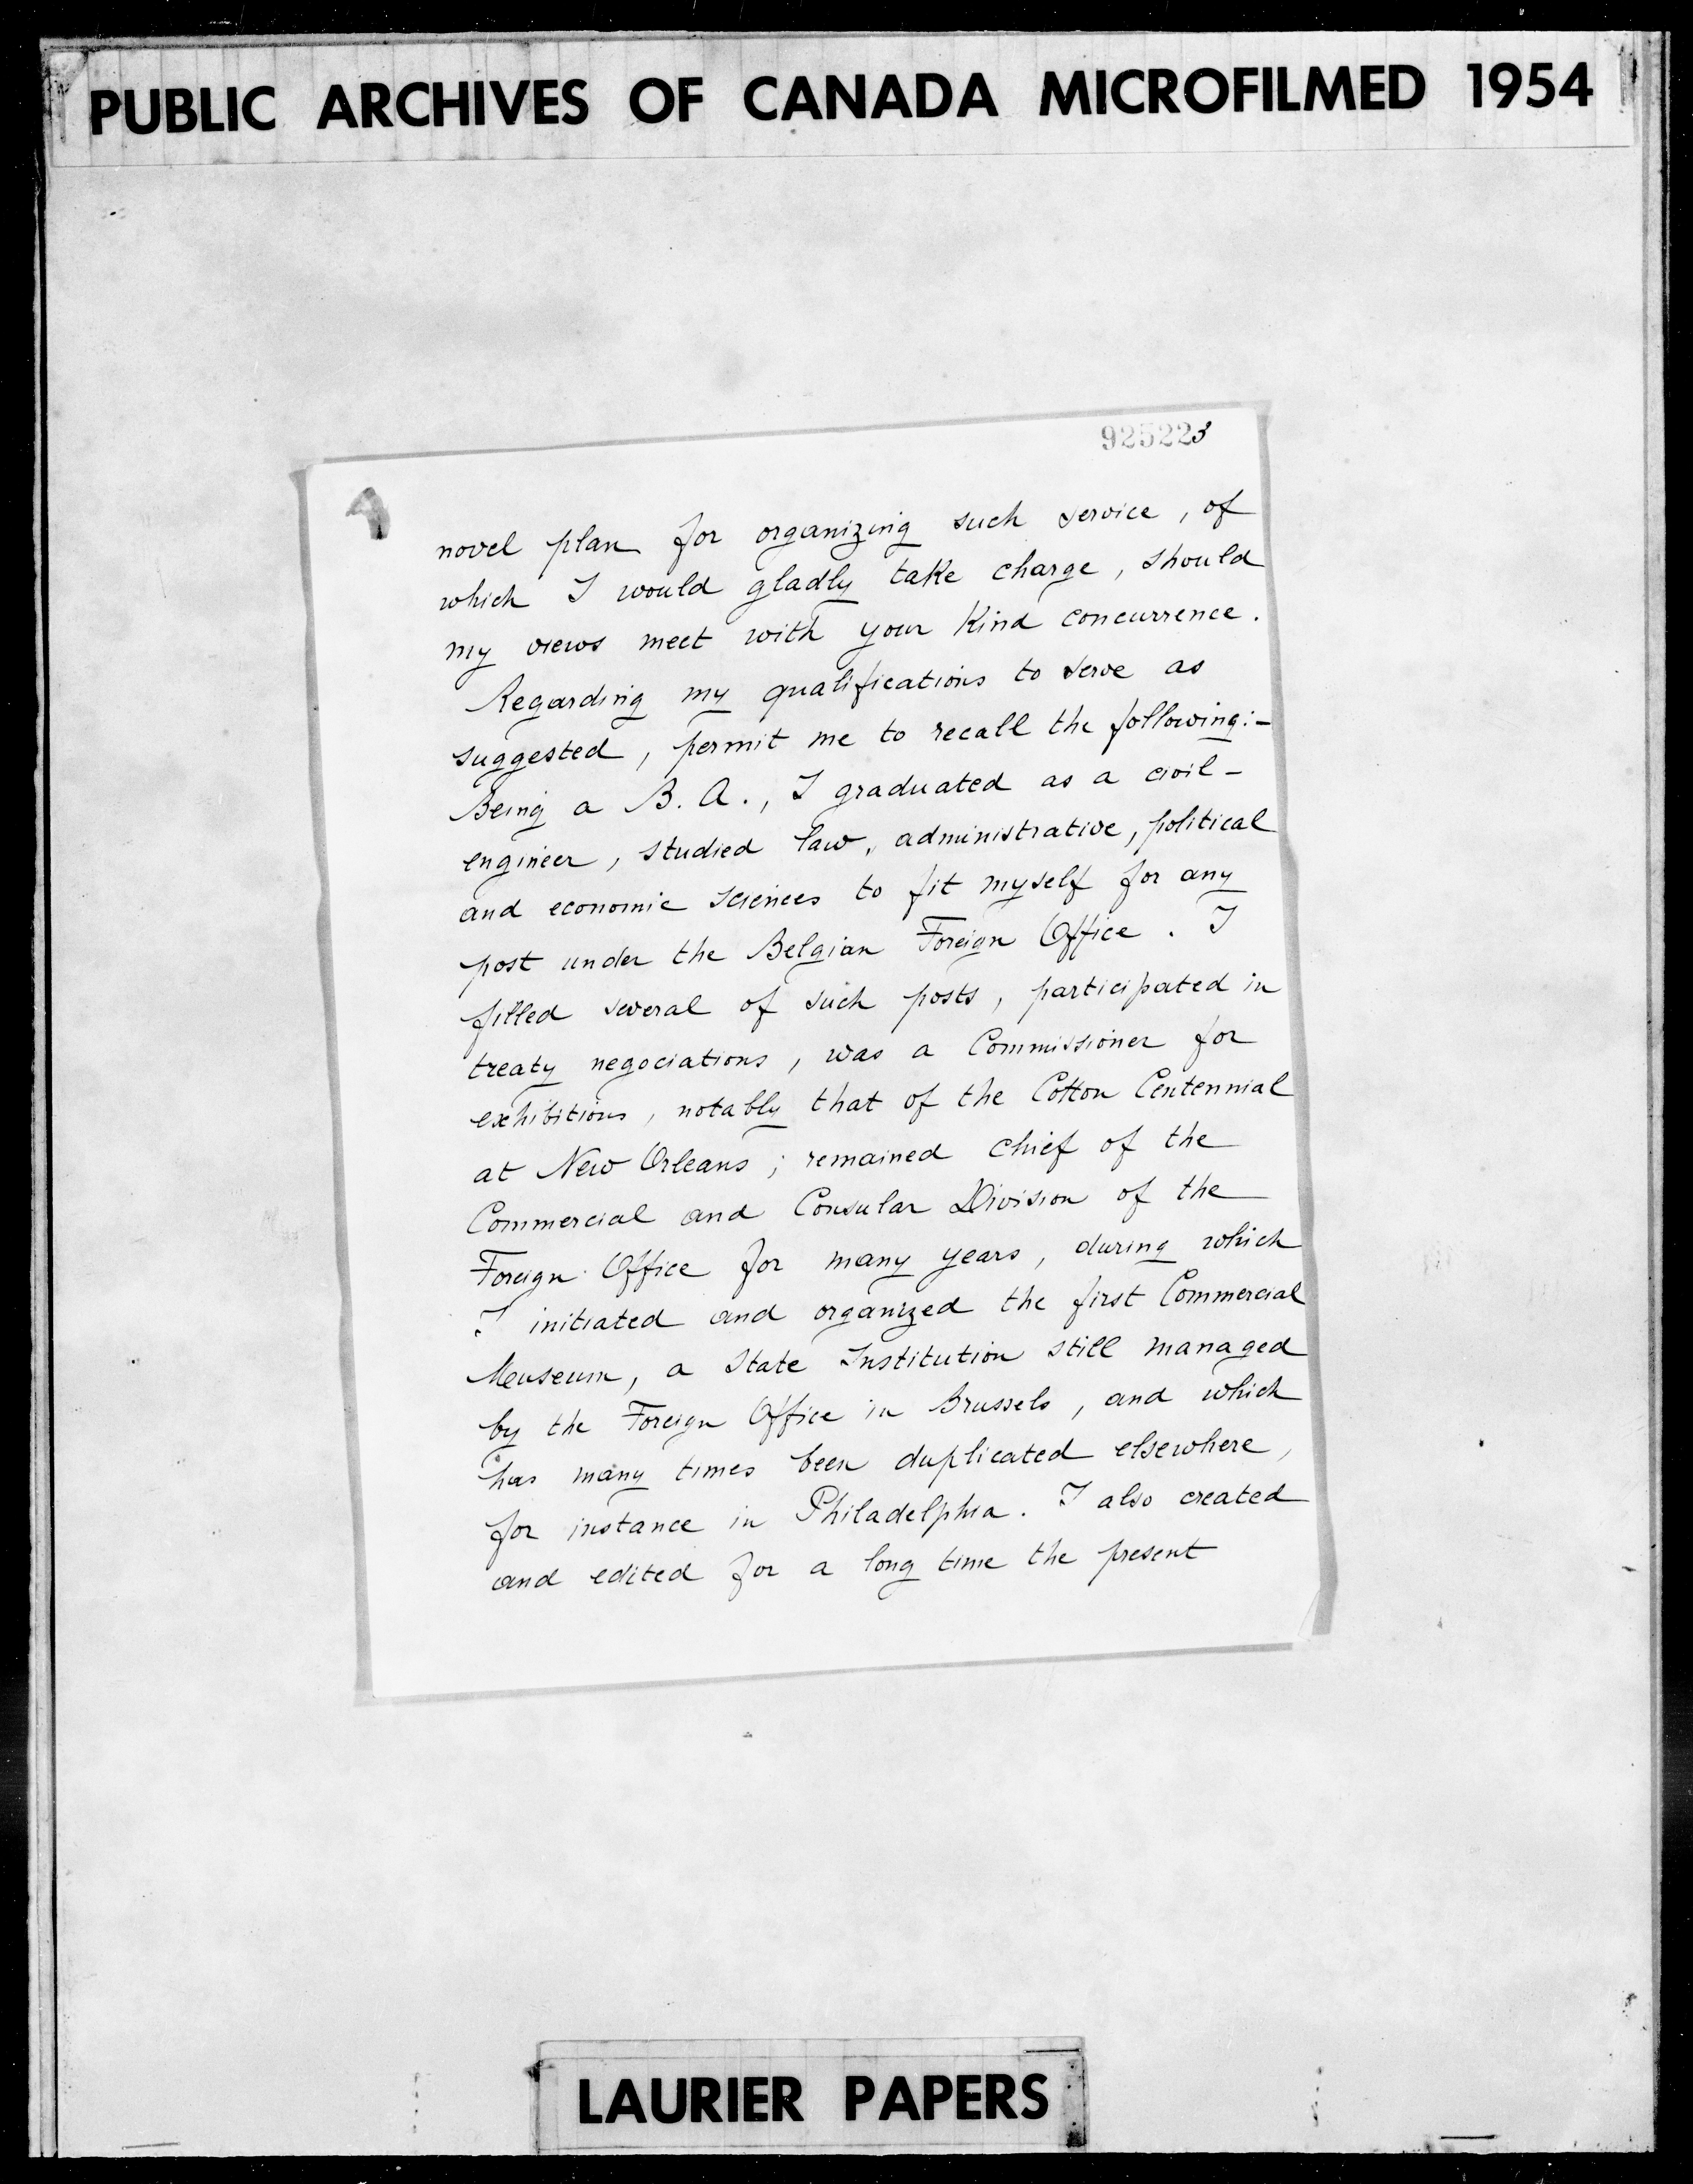 PUBLIC ARCHIVES OF CANADA MICROFILMED 1954
925223
novel plan for organizing such service, of
which I would gladly take charge, should
my views meet with your kind concurrence.
Regarding my qualifications to serve as
suggested, permit me to recall the following:-
Being a B. A., I graduated as a civil-
engineer, studied law, administrative, political
and economic sciences to fit myself for any
post under the Belgian Foreign Office. I
filled several of such posts, participated in
treaty negociations, was a Commissioner for
exhibitions, notably that of the Cotton Centennial
at New Orleans; remained chief of the
Commercial and Consular Division of the
Foreign Office for many years, during which
I initiated and organized the first Commercial
Museum, a State Institution still managed
by the Foreign Office in Brussels, and which
has many times been duplicated elsewhere,
for instance in Philadelphia. I also created
and edited for a long time the present
LAURIER PAPERS